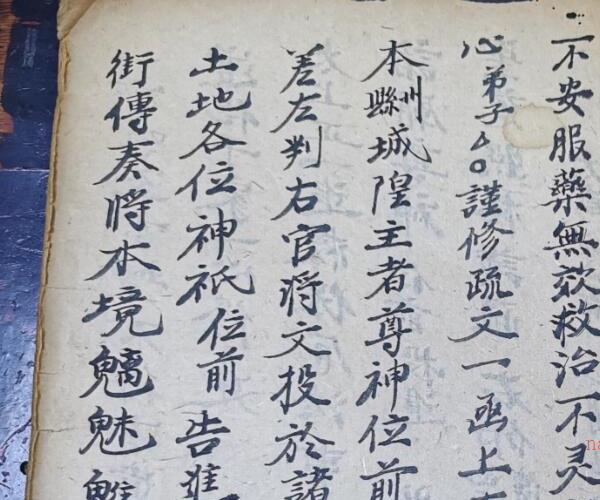 不安服藥無效救治不灵
心弟子厶〇謹修疏文一函上
本縣州城隍主者尊神位前
差左判右官将文投於諸
土地各位神祇位前告進
街傳奏将本境魑魅